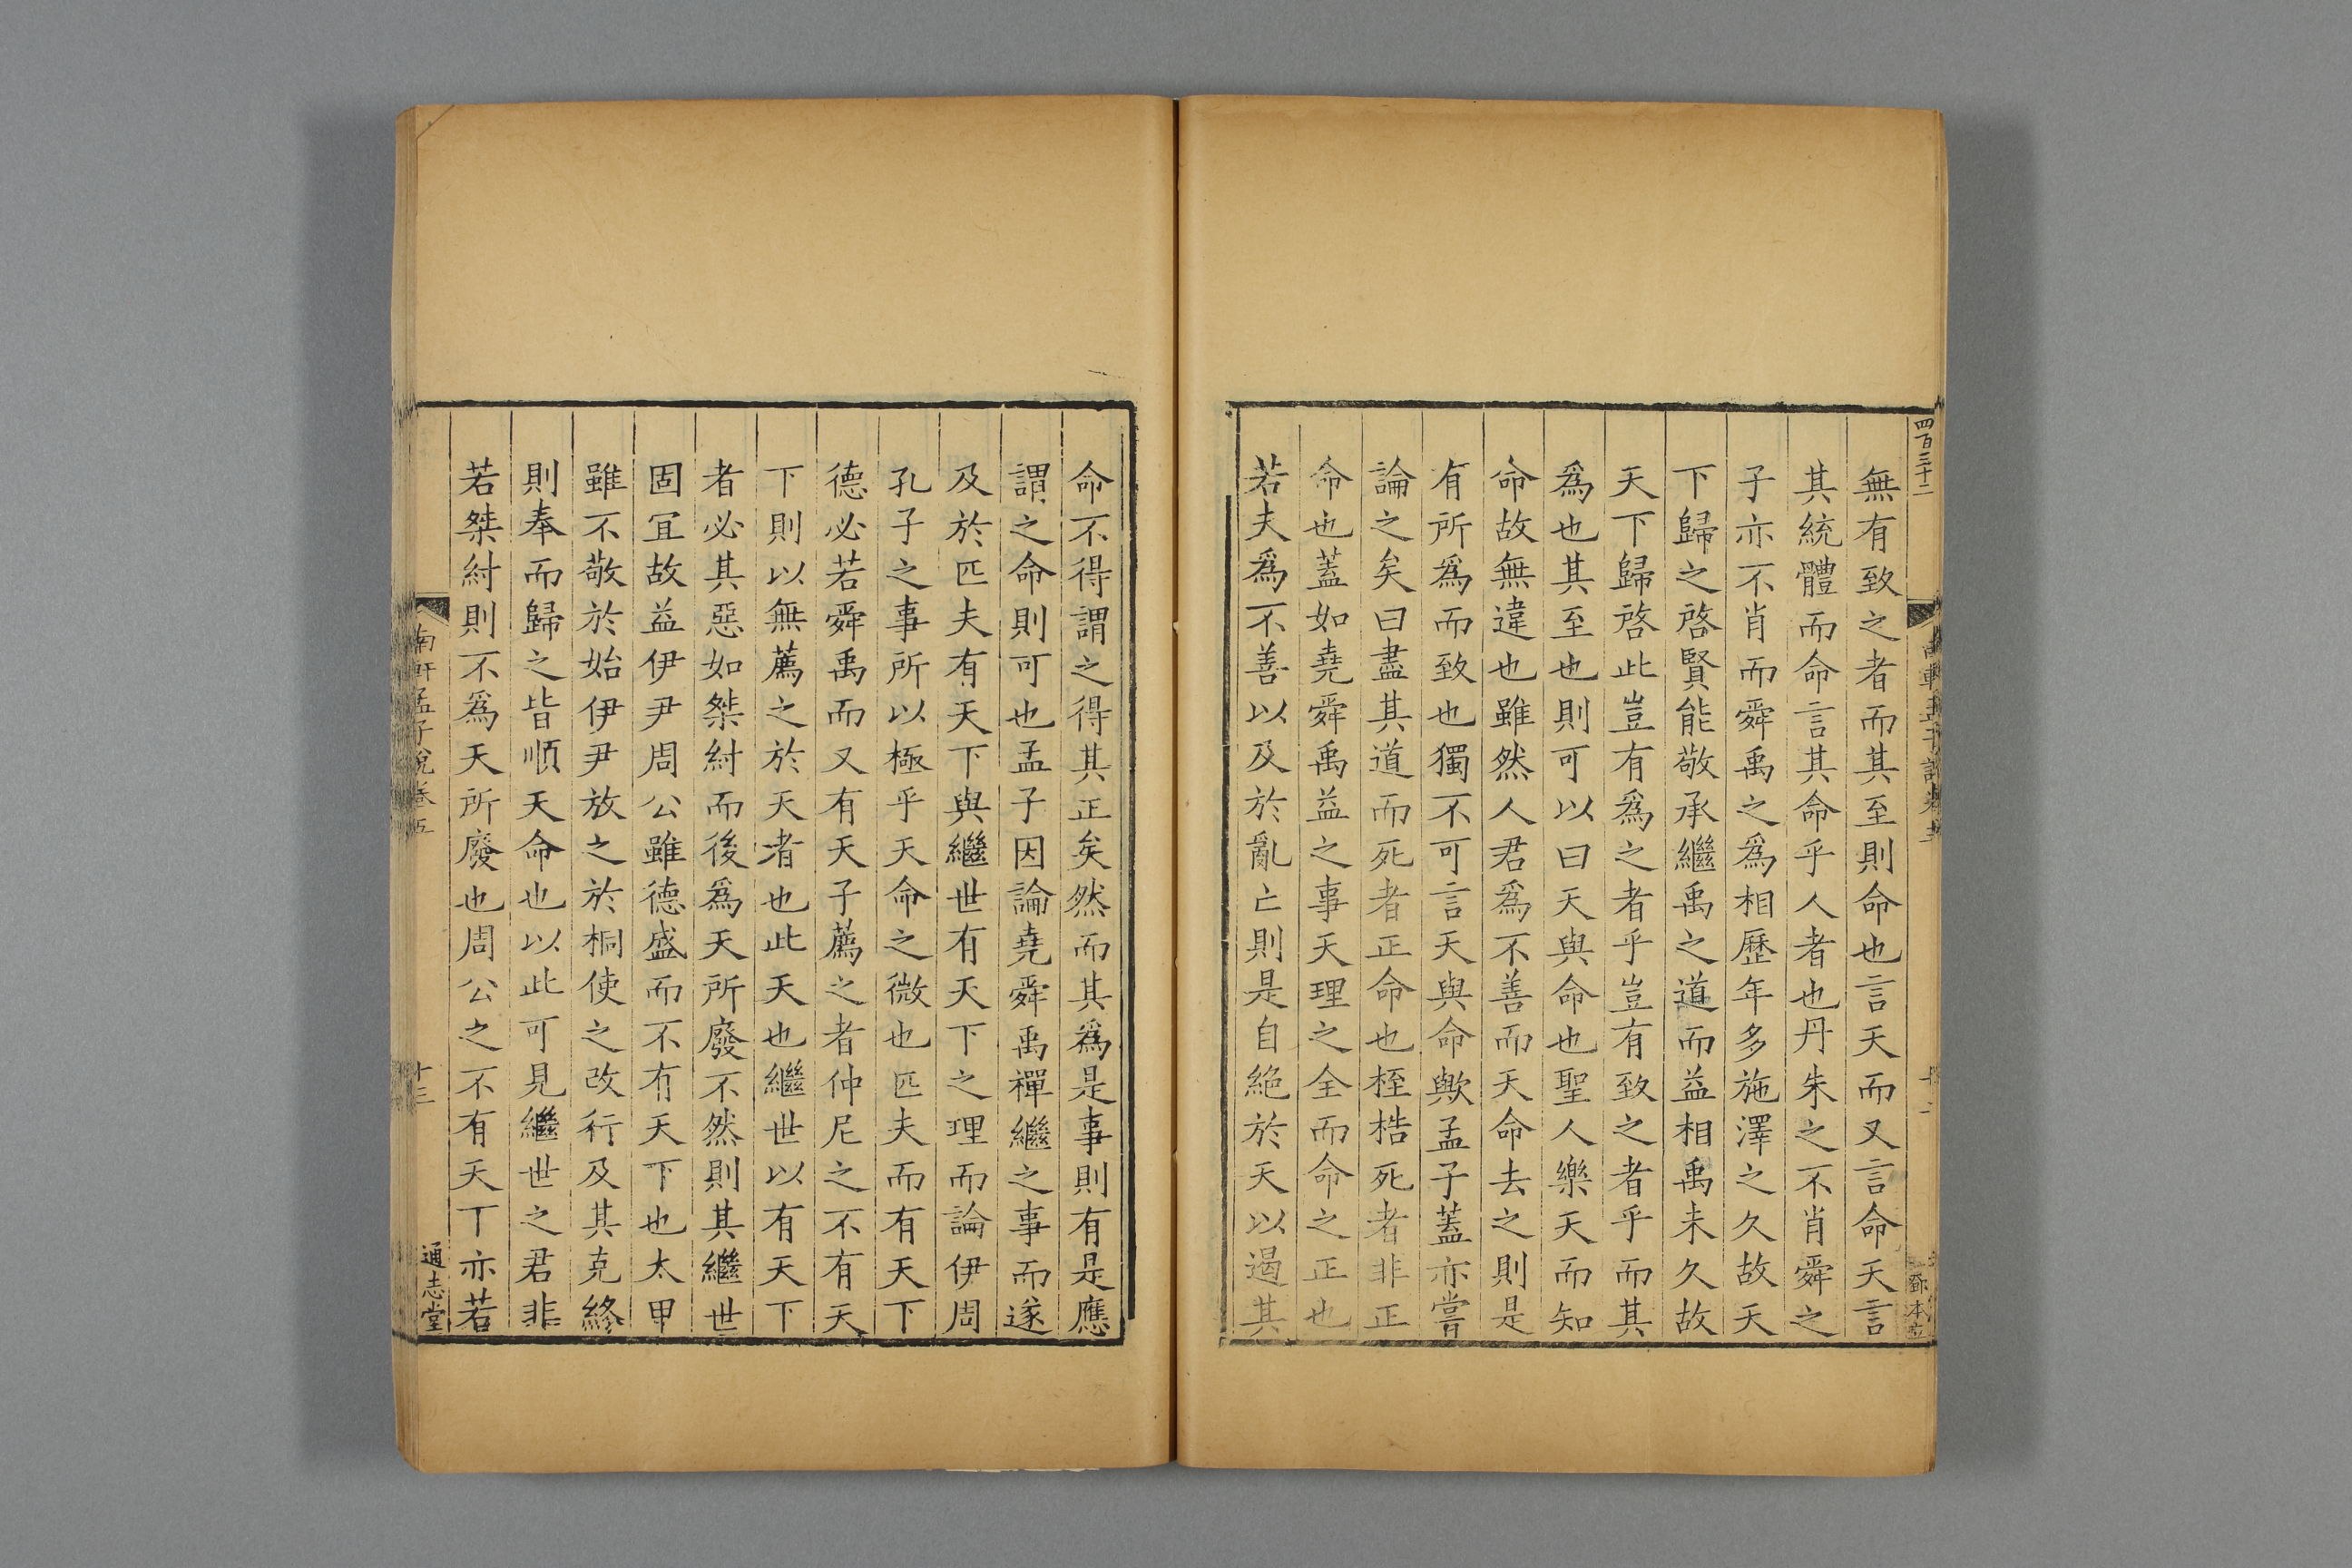 四百三十二
無有致之者而其至則命也言天而又言命天言
其統體而命言其命乎人者也丹朱之不肖舜之
子亦不肖而舜禹之爲相歷年多施澤之久故天
下歸之啓賢能敬承繼禹之道而益相禹未久故
天下歸啓此豈有爲之者乎豈有致之者乎而其
爲也其至也則可以曰天與命也聖人樂天而知
命故無違也雖然人君爲不善而天命去之則是
有所爲而致也獨不可言天與命歟孟子蓋亦嘗
論之矣曰盡其道而死者正命也桎梏死者非正
命也蓋如堯舜禹益之事天理之全而命之正也
若夫爲不善以及於亂亡則是自絶於天以遏其
鄧本立
命不得謂之得其正矣然而其爲是事則有是應
謂之命則可也孟子因論堯舜禹禪繼之事而遂
及於匹夫有天下與繼世有天下之理而論伊周
孔子之事所以極乎天命之微也匹夫而有天下
德必若舜禹而又有天子薦之者仲尼之不有天
下則以無薦之於天者也此天也繼世以有天下
者必其惡如桀紂而後爲天所廢不然則其繼世
固宜故益伊尹周公雖德盛而不有天下也太甲
雖不敬於始伊尹放之於桐使之改行及其克終
則奉而歸之皆順天命也以此可見繼世之君非
若桀紂則不爲天所廢也周公之不有天丅亦若
南軒孟子說卷五
十三
通志堂